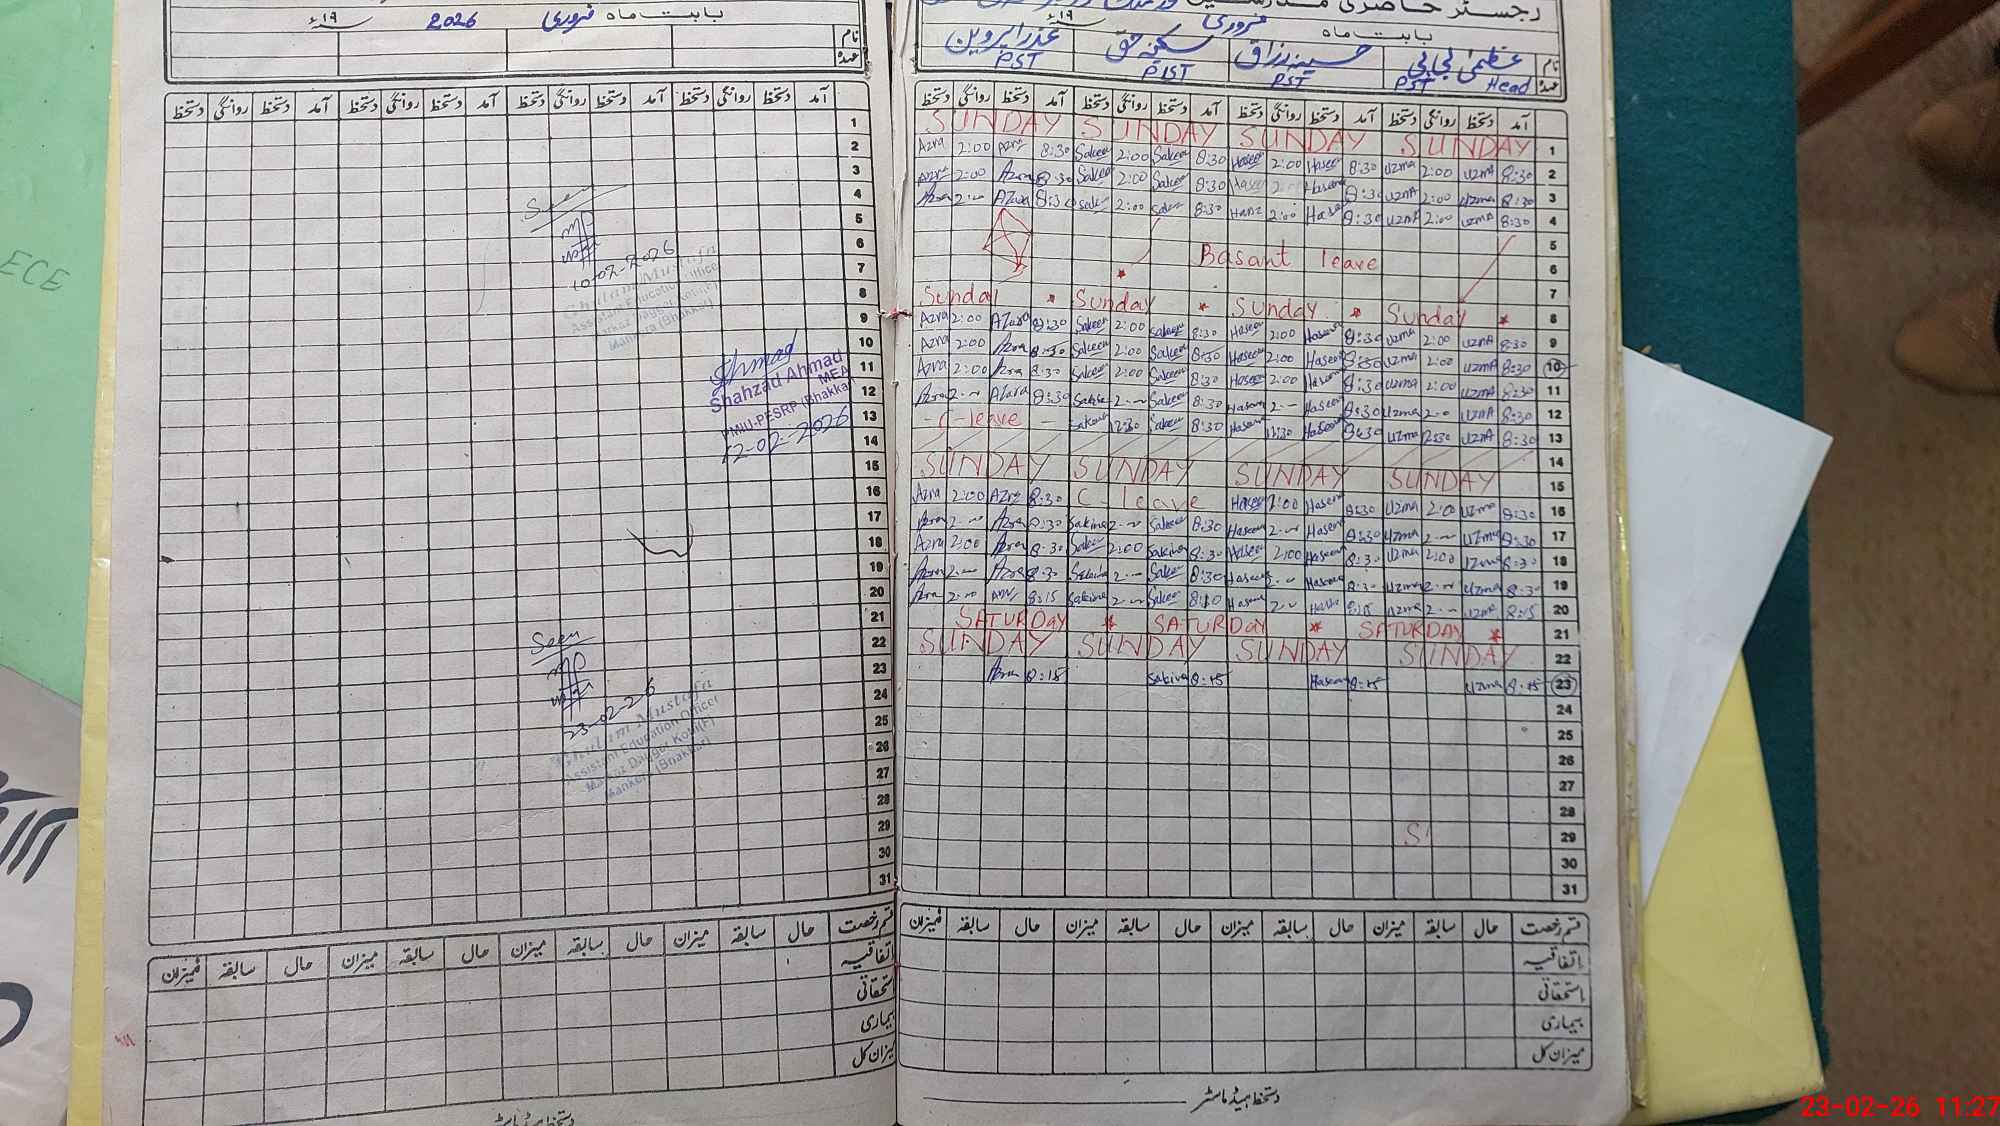 بابت ماہ فروری 2026 ۱۹ء
نام
عہدہ
آمد دستخط روانگی دستخط آمد دستخط روانگی دستخط آمد دستخط روانگی دستخط آمد دستخط روانگی دستخط
1
2
3
4
5
6
7
8
9
10
11
12
13
14
15
16
17
18
19
20
21
22
23
24
25
26
27
28
29
30
31
Seen
10-02-2026
Assistant Education Officer
Mankera (Bhakkar)
Ahmad
Shahzad Ahmad
MEA
PMIU-PESRP (Bhakkar)
12-02-2026
Seen
23-02-26
Ghulam Mustafa
Assistant Education Officer
Mankera (Bhakkar)
قسم رخصت حال سابقہ میزان حال سابقہ میزان حال سابقہ میزان حال سابقہ میزان
اتفاقیہ
استحقاقی
بیماری
میزان کل
دستخط ہیڈ ماسٹر
رجسٹر حاضری مدرسین
بابت ماہ فروری ۱۹ء
نام عظمیٰ حسینہ رزاق سکینہ حق عذرا پروین
عہدہ Head PST PST PST PST
آمد دستخط روانگی دستخط آمد دستخط روانگی دستخط آمد دستخط روانگی دستخط آمد دستخط روانگی دستخط
SUNDAY SUNDAY SUNDAY SUNDAY 1
Azra 2:00 Azra 8:30 Sakeen 2:00 Sakeen 8:30 Haseen 2:00 Haseen 8:30 Uzma 2:00 Uzma 8:30 2
Azra 2:00 Azra 8:30 Sakeen 2:00 Sakeen 8:30 Haseen Haseen 8:30 Uzma 2:00 Uzma 8:30 3
Azra 2:00 Azra 8:30 Sakeen 2:00 Sakeen 8:30 2:00 8:30 Uzma 2:00 Uzma 8:30 4
5
Basant leave 6
7
Sunday * Sunday * Sunday * Sunday * 8
Azra 2:00 Azra 8:30 Sakeen 2:00 Sakeen 8:30 Haseen 2:00 Haseen 8:30 Uzma 2:00 Uzma 8:30 9
Azra 2:00 Azra 8:30 Sakeen 2:00 Sakeen 8:30 Haseen 2:00 Haseen 8:30 Uzma 2:00 Uzma 8:30 10
Azra 2:00 Azra 8:30 Sakeen 2:00 Sakeen 8:30 Haseen 2:00 Haseen 8:30 Uzma 2:00 Uzma 8:30 11
Azra 2:00 Azra 8:30 2:00 Sakeen 8:30 Haseen 2:00 Haseen 8:30 Uzma 2:00 Uzma 8:30 12
- C-leave - Sakeen 12:30 Sakeen 8:30 Haseen 12:30 Haseen 8:30 Uzma 12:30 Uzma 8:30 13
14
SUNDAY SUNDAY SUNDAY SUNDAY 15
Azra 2:00 Azra 8:30 C-leave Haseen 2:00 Haseen 8:30 Uzma 2:00 Uzma 8:30 16
Azra 2:00 Azra 8:30 Sakina 2:00 Sakeen 8:30 Haseen 2:00 Haseen 8:30 Uzma 2:00 Uzma 8:30 17
Azra 2:00 Azra 8:30 Sakeen 2:00 Sakina 8:30 Haseen 2:00 Haseen 8:30 Uzma 2:00 Uzma 8:30 18
Azra 2:00 Azra 8:30 Sakina 2:00 Sakeen 8:30 Haseen 2:00 Haseen 8:30 Uzma 2:00 Uzma 8:30 19
Azra 2:00 8:15 Sakina 2:00 Sakeen Haseen 2:00 8:15 Uzma 2:00 Uzma 8:15 20
SATURDAY * SATURDAY * SATURDAY * 21
SUNDAY SUNDAY SUNDAY SUNDAY 22
Azra 8:15 Sakina 8:15 Haseen 8:15 Uzma 8:15 23
24
25
26
27
28
S 29
30
31
قسم رخصت حال سابقہ میزان حال سابقہ میزان حال سابقہ میزان حال سابقہ میزان
اتفاقیہ
استحقاقی
بیماری
میزان کل
دستخط ہیڈ ماسٹر
ECE
23-02-26 11:27